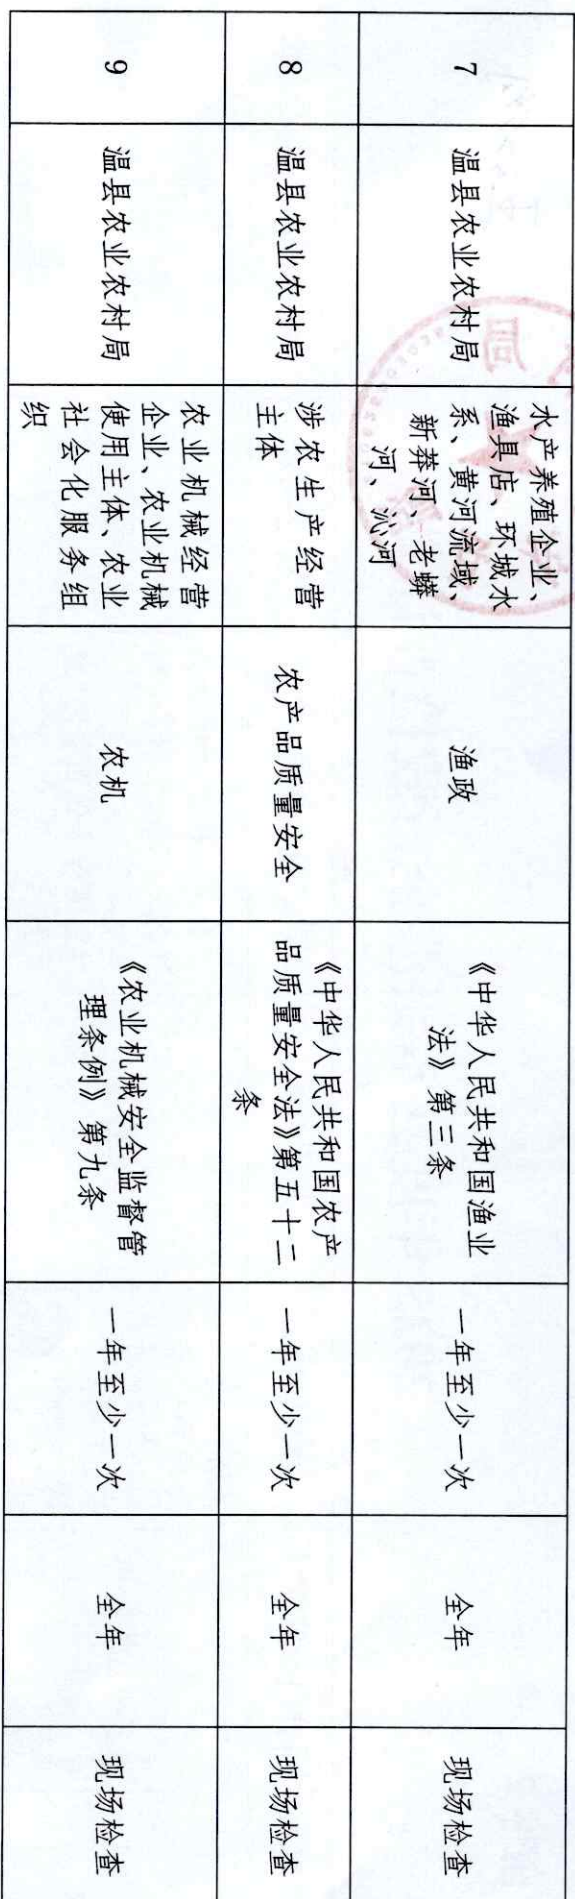 7
温县农业农村局
水产养殖企业、
渔具店、环城水
系、黄河流域、
新莽河、老蟒
河、沁河
渔政
《中华人民共和国渔业
法》第三条
一年至少一次
全年
现场检查
8
温县农业农村局
涉农生产经营
主体
农产品质量安全
《中华人民共和国农产
品质量安全法》第五十二
条
一年至少一次
全年
现场检查
9
温县农业农村局
农业机械经营
企业、农业机械
使用主体、农业
社会化服务组
织
农机
《农业机械安全监督管
理条例》第九条
一年至少一次
全年
现场检查